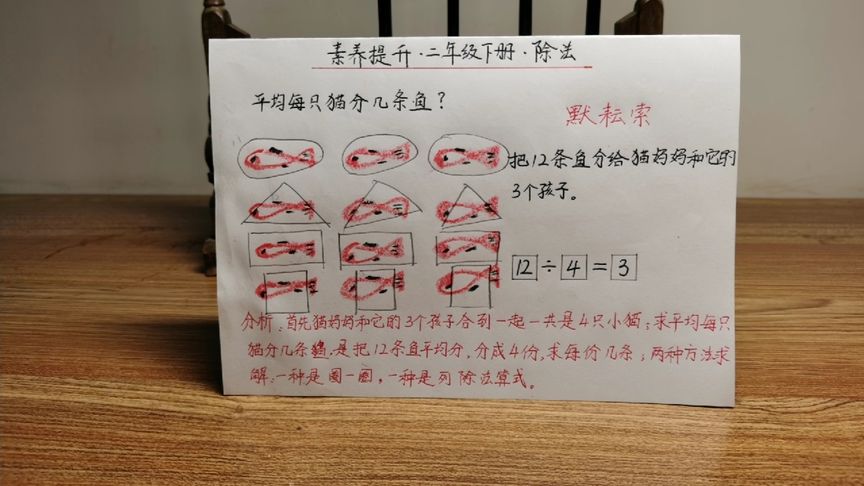 素养提升·二年级下册·除法
平均每只猫分几条鱼?
默耘索
把12条鱼分给猫妈妈和它的
3个孩子。
12÷4=3
分析:首先猫妈妈和它的3个孩子合到一起一共是4只小猫;求平均每只
猫分几条鱼.是把12条鱼平均分.分成4份,求每份几条;两种方法求
解:一种是圈一圈,一种是列除法算式。